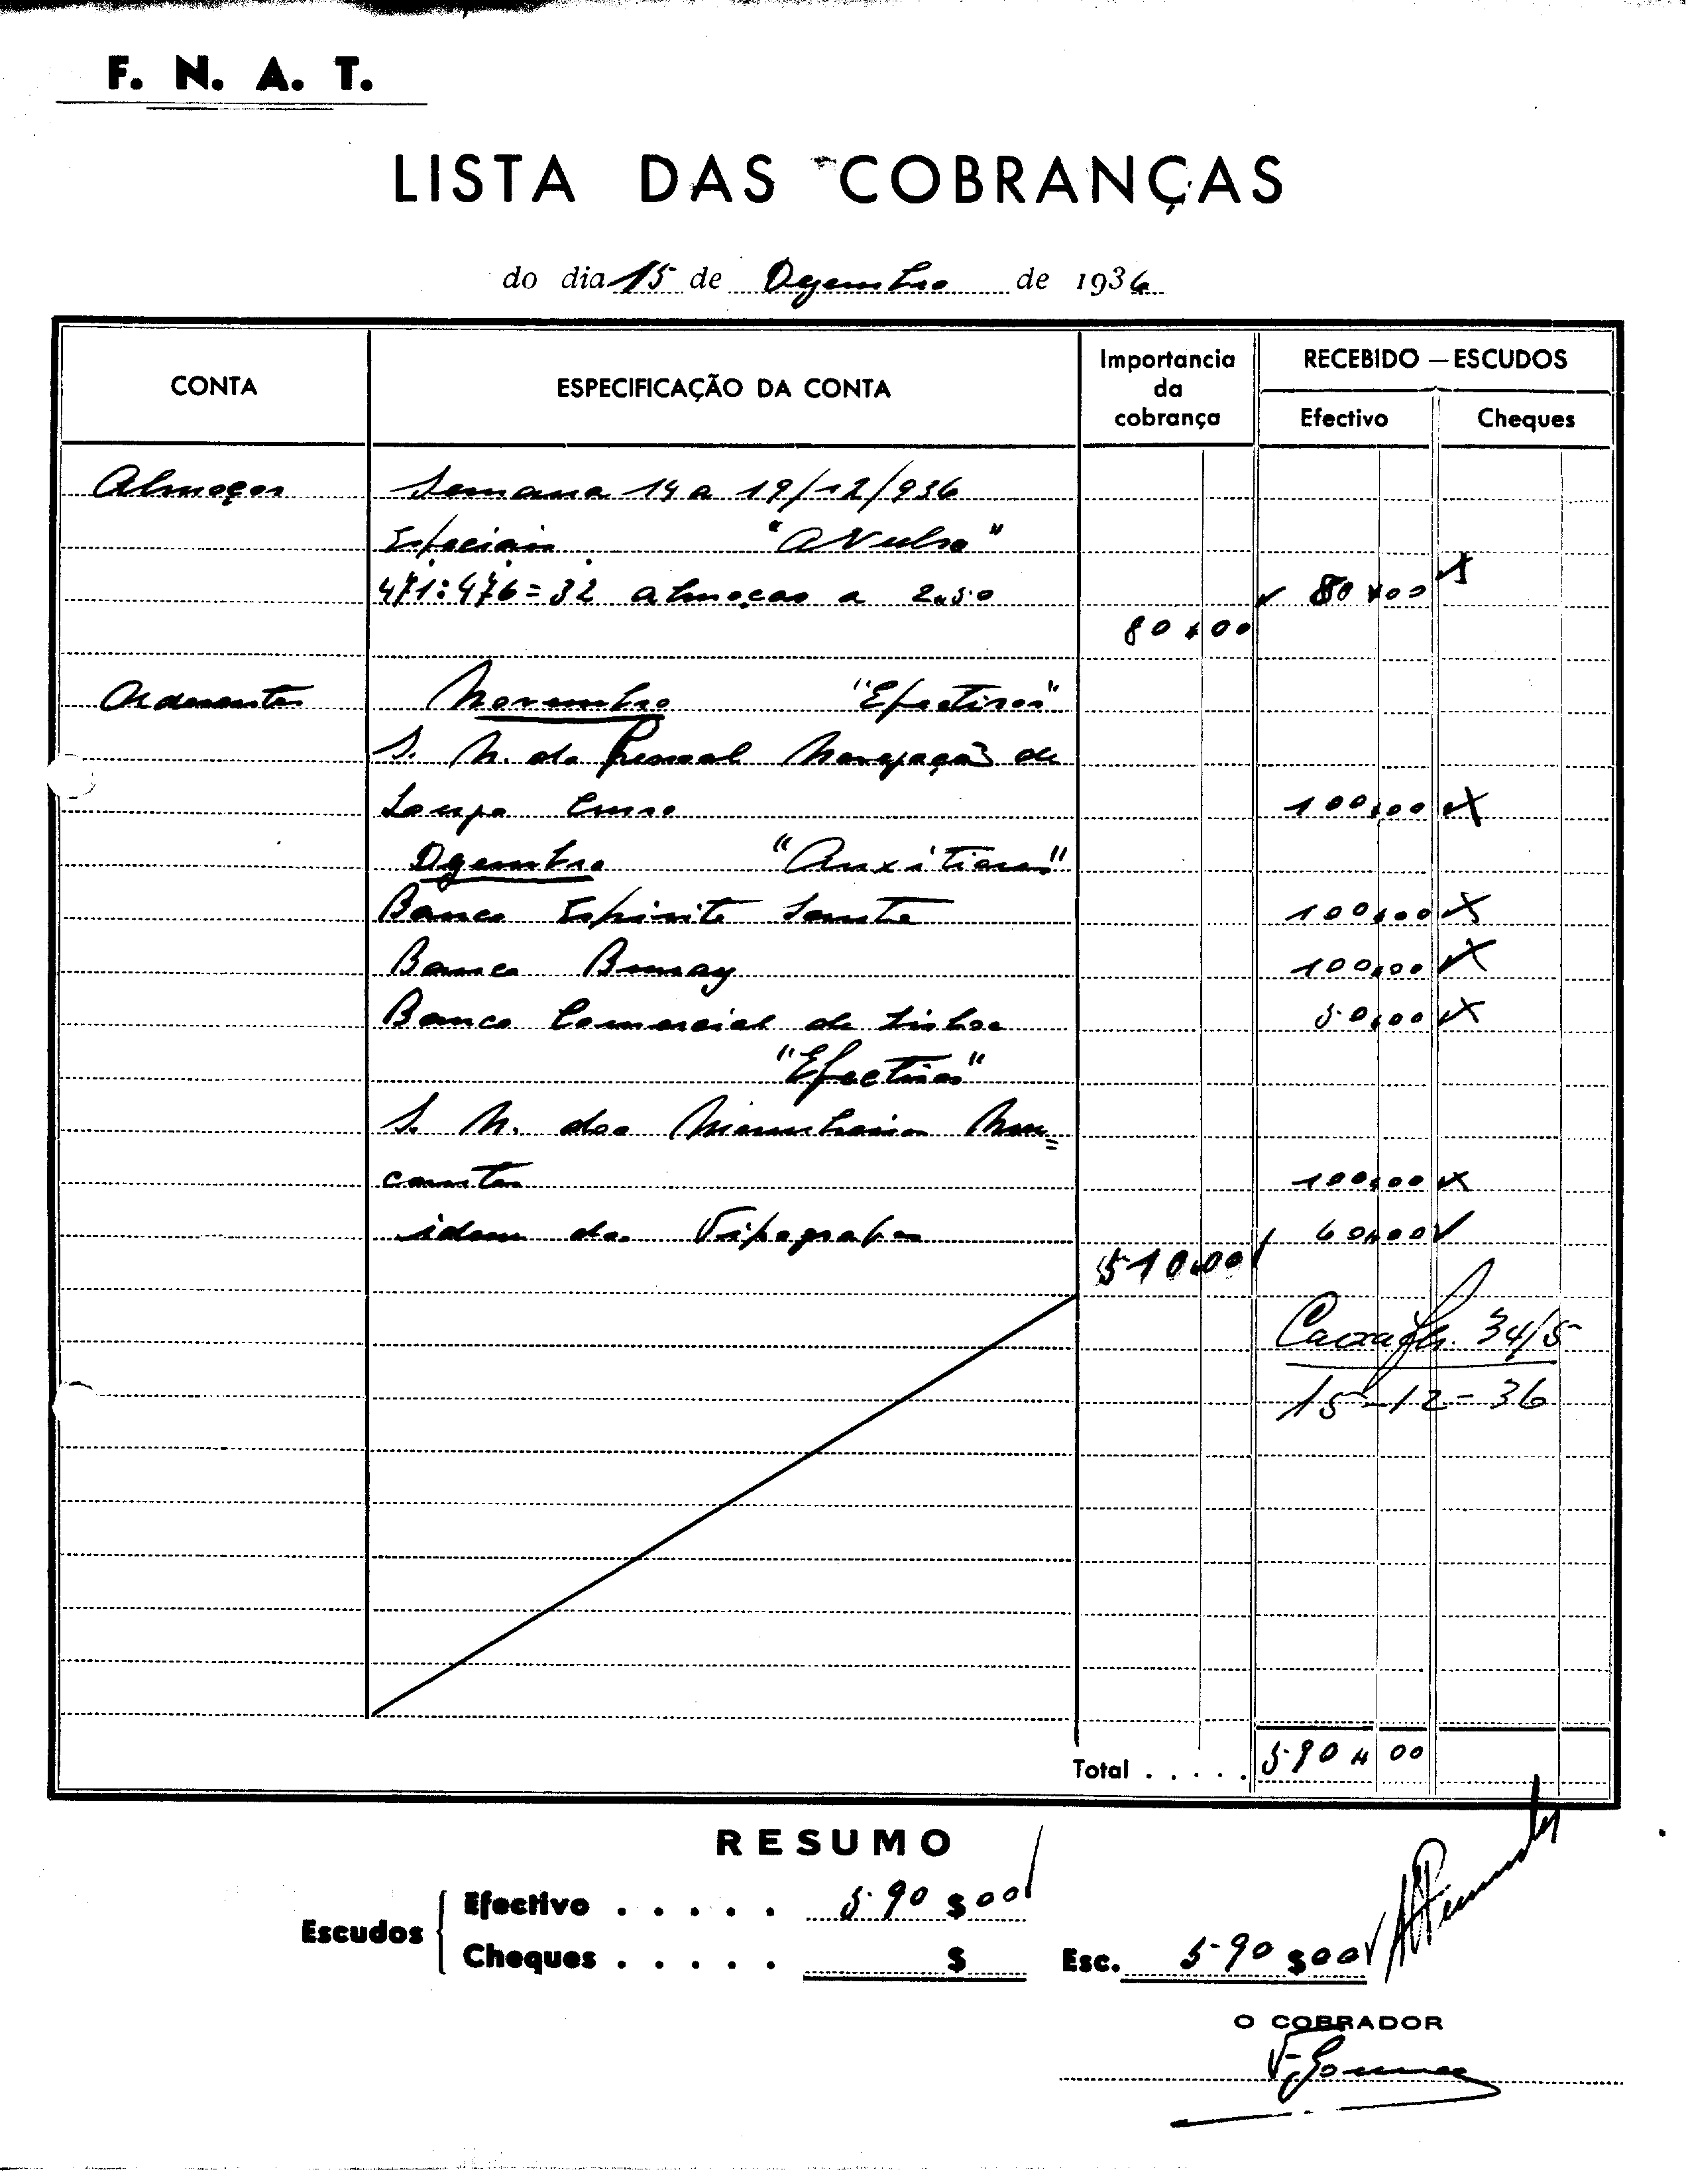 F. N. A. T.
LISTA DAS COBRANÇAS
do dia 15 de Dezembro de 1936
CONTA
ESPECIFICAÇÃO DA CONTA
Importancia da cobrança
RECEBIDO — ESCUDOS
Efectivo
Cheques
Almoços Semana 14 a 19/12/936
Especiais "Avulso"
471:476=32 almoços a 2$50 80$00
80$00
Aderentes Novembro "Efectivos"
S. N. do Pessoal Navegação de
Longo Curso 100$00
Dezembro "Auxiliares"
Banco Espirito Santo 100$00
Banco Burnay 100$00
Banco Comercial de Lisboa 50$00
"Efectivos"
S. N. dos Marinheiros Mer=
cantes 100$00
idem dos Tipografos 60$00
510$00
Caixa fls. 34/5
15-12-36
Total . . . . . 590$00
RESUMO
Escudos
Efectivo . . . . . 590$00
Cheques . . . . . $
Esc. 590$00
O COBRADOR